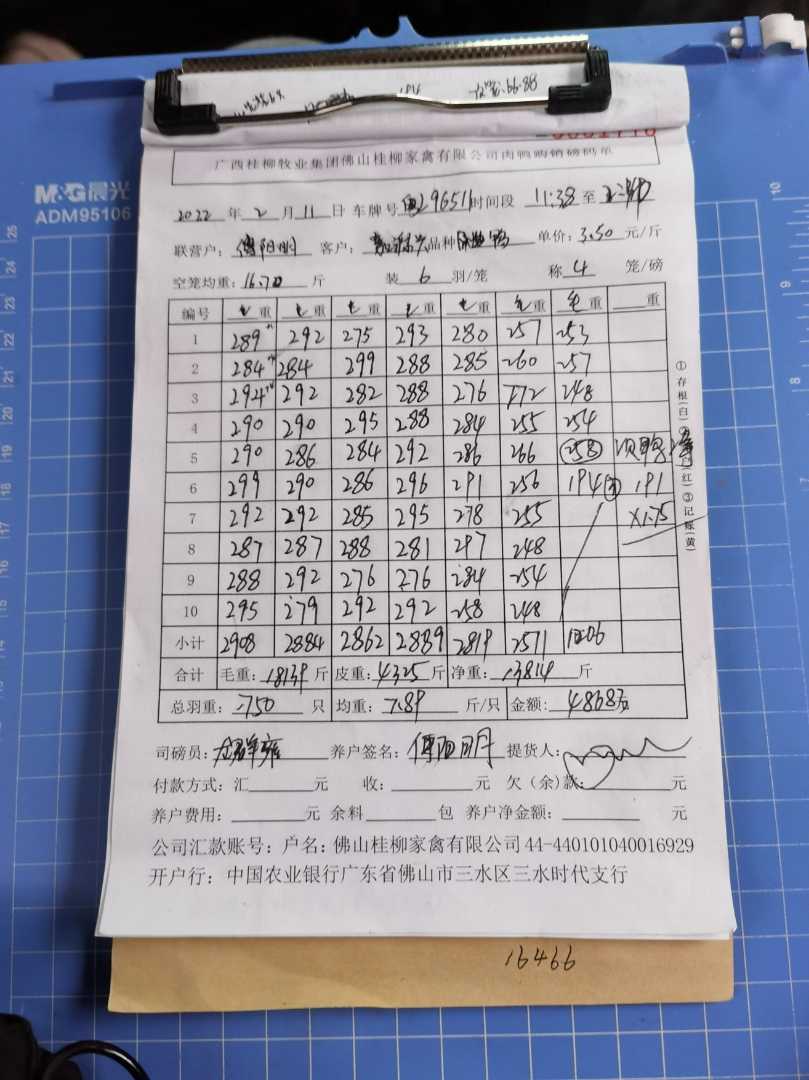 66.88
M&G晨光
ADM95106
广西桂柳牧业集团佛山桂柳家禽有限公司肉鸭购销磅码单
2022年2月11日 车牌号 29651 时间段 11:38 至
联营户: 傅阳明 客户: 品种 单价: 3.50 元/斤
空笼均重: 16.70 斤 装 6 羽/笼 称 4 笼/磅
编号 毛重 毛重 毛重 毛重 毛重 毛重 毛重 重
1 289 292 275 293 280 257 253
2 284 284 299 288 285 260 257
3 294 292 282 288 276 272 248
4 290 290 295 288 284 255 254
5 290 286 284 292 286 266 258
6 299 290 286 296 291 256 194 191
7 292 292 285 295 278 255 X1.75
8 287 287 288 281 297 248
9 288 292 276 276 284 254
10 295 279 292 292 258 248
小计 2908 2884 2862 2889 2819 2571
合计 毛重: 18139 斤 皮重: 4325 斤 净重: 13814 斤
总羽重: 1750 只 均重: 7.89 斤/只 金额: 4868
司磅员: 养户签名: 傅阳明 提货人:
付款方式: 汇 元 收: 元 欠(余)款: 元
养户费用: 元 余料 包 养户净金额: 元
公司汇款账号: 户名: 佛山桂柳家禽有限公司 44-440101040016929
开户行: 中国农业银行广东省佛山市三水区三水时代支行
①存根(白)②(红)③记账(黄)
16466